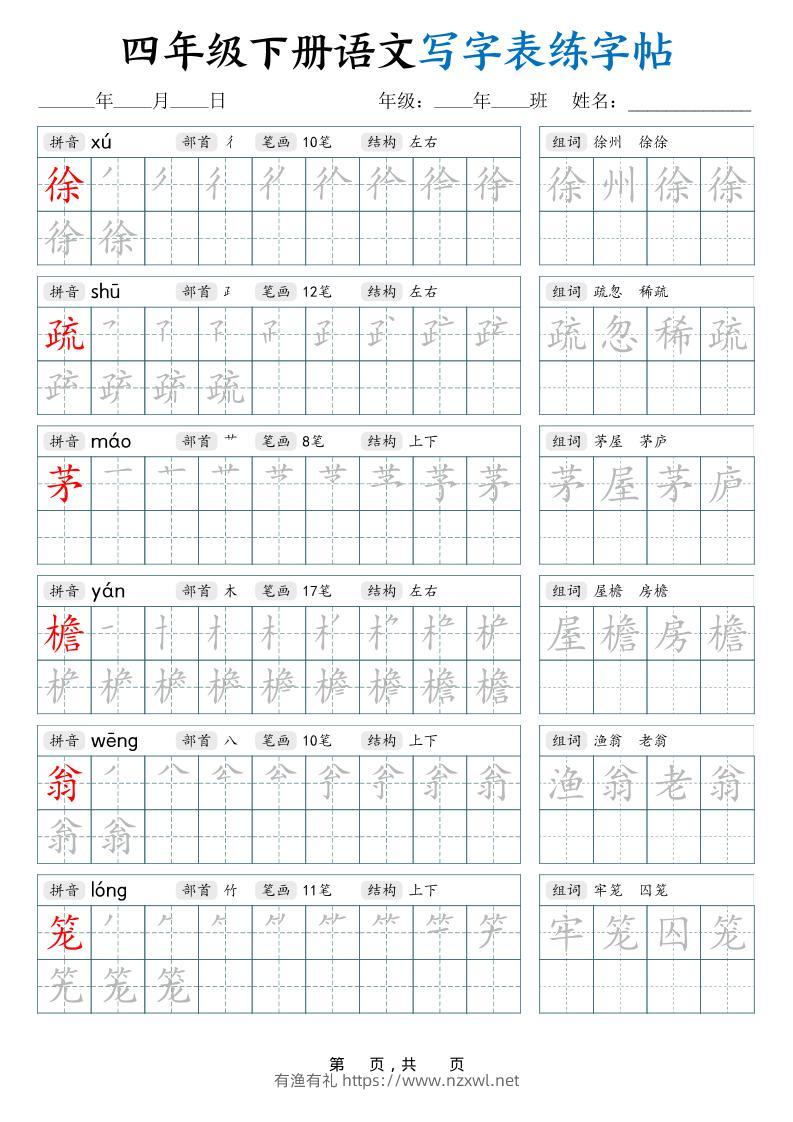 四年级下册语文写字表练字帖
____年____月____日 年级：____年____班 姓名：____________
拼音 xú 部首 彳 笔画 10笔 结构 左右 组词 徐州 徐徐
徐 徐州徐徐
徐
拼音 shū 部首 𤴔 笔画 12笔 结构 左右 组词 疏忽 稀疏
疏 疏忽稀疏
疏
拼音 máo 部首 艹 笔画 8笔 结构 上下 组词 茅屋 茅庐
茅 茅 茅屋茅庐
拼音 yán 部首 木 笔画 17笔 结构 左右 组词 屋檐 房檐
檐 屋檐房檐
檐
拼音 wēng 部首 八 笔画 10笔 结构 上下 组词 渔翁 老翁
翁 渔翁老翁
翁
拼音 lóng 部首 竹 笔画 11笔 结构 上下 组词 牢笼 囚笼
笼 牢笼囚笼
笼
第 页，共 页
有渔有礼 https://www.nzxwl.net